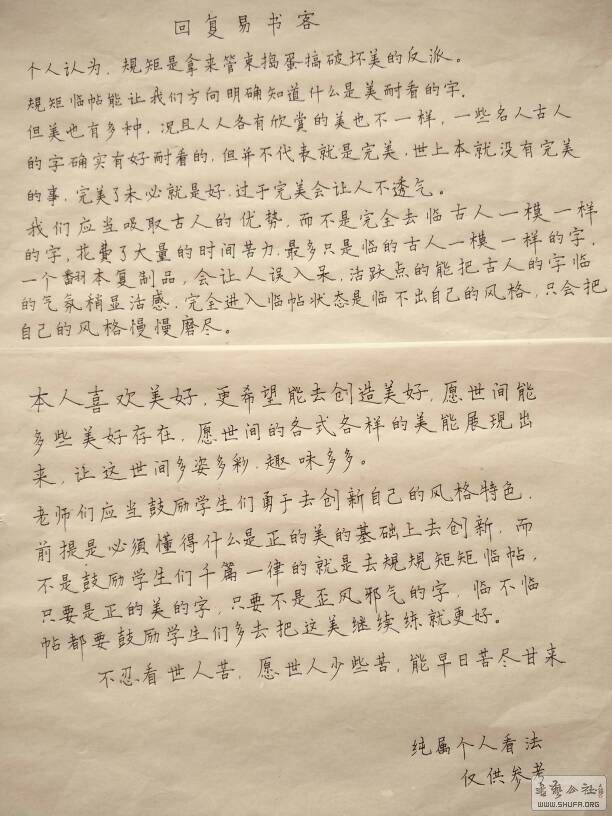 回复易书客
个人认为，规矩是拿来管束捣蛋搞破坏美的反派。
规矩临帖能让我们方向明确知道什么是美耐看的字。
但美也有多种，况且人人各有欣赏的美也不一样，一些名人古人
的字确实有好耐看的，但并不代表就是完美，世上本就没有完美
的事，完美了未必就是好，过于完美会让人不透气。
我们应当吸取古人的优势，而不是完全去临古人一模一样
的字，花费了大量的时间苦力，最多只是临的古人一模一样的字，
一个翻本复制品，会让人误入呆，活跃点的能把古人的字临
的气氛稍显活感，完全进入临帖状态是临不出自己的风格，只会把
自己的风格慢慢磨尽。
本人喜欢美好，更希望能去创造美好，愿世间能
多些美好存在，愿世间的各式各样的美能展现出
来，让这世间多姿多彩，趣味多多。
老师们应当鼓励学生们勇于去创新自己的风格特色，
前提是必须懂得什么是正的美的基础上去创新，而
不是鼓励学生们千篇一律的就是去规规矩矩临帖，
只要是正的美的字，只要不是歪风邪气的字，临不临
帖都要鼓励学生们多去把这美继续练就更好。
不忍看世人苦，愿世人少些苦，能早日苦尽甘来
纯属个人看法
仅供参考
书艺公社
WWW.SHUFA.ORG